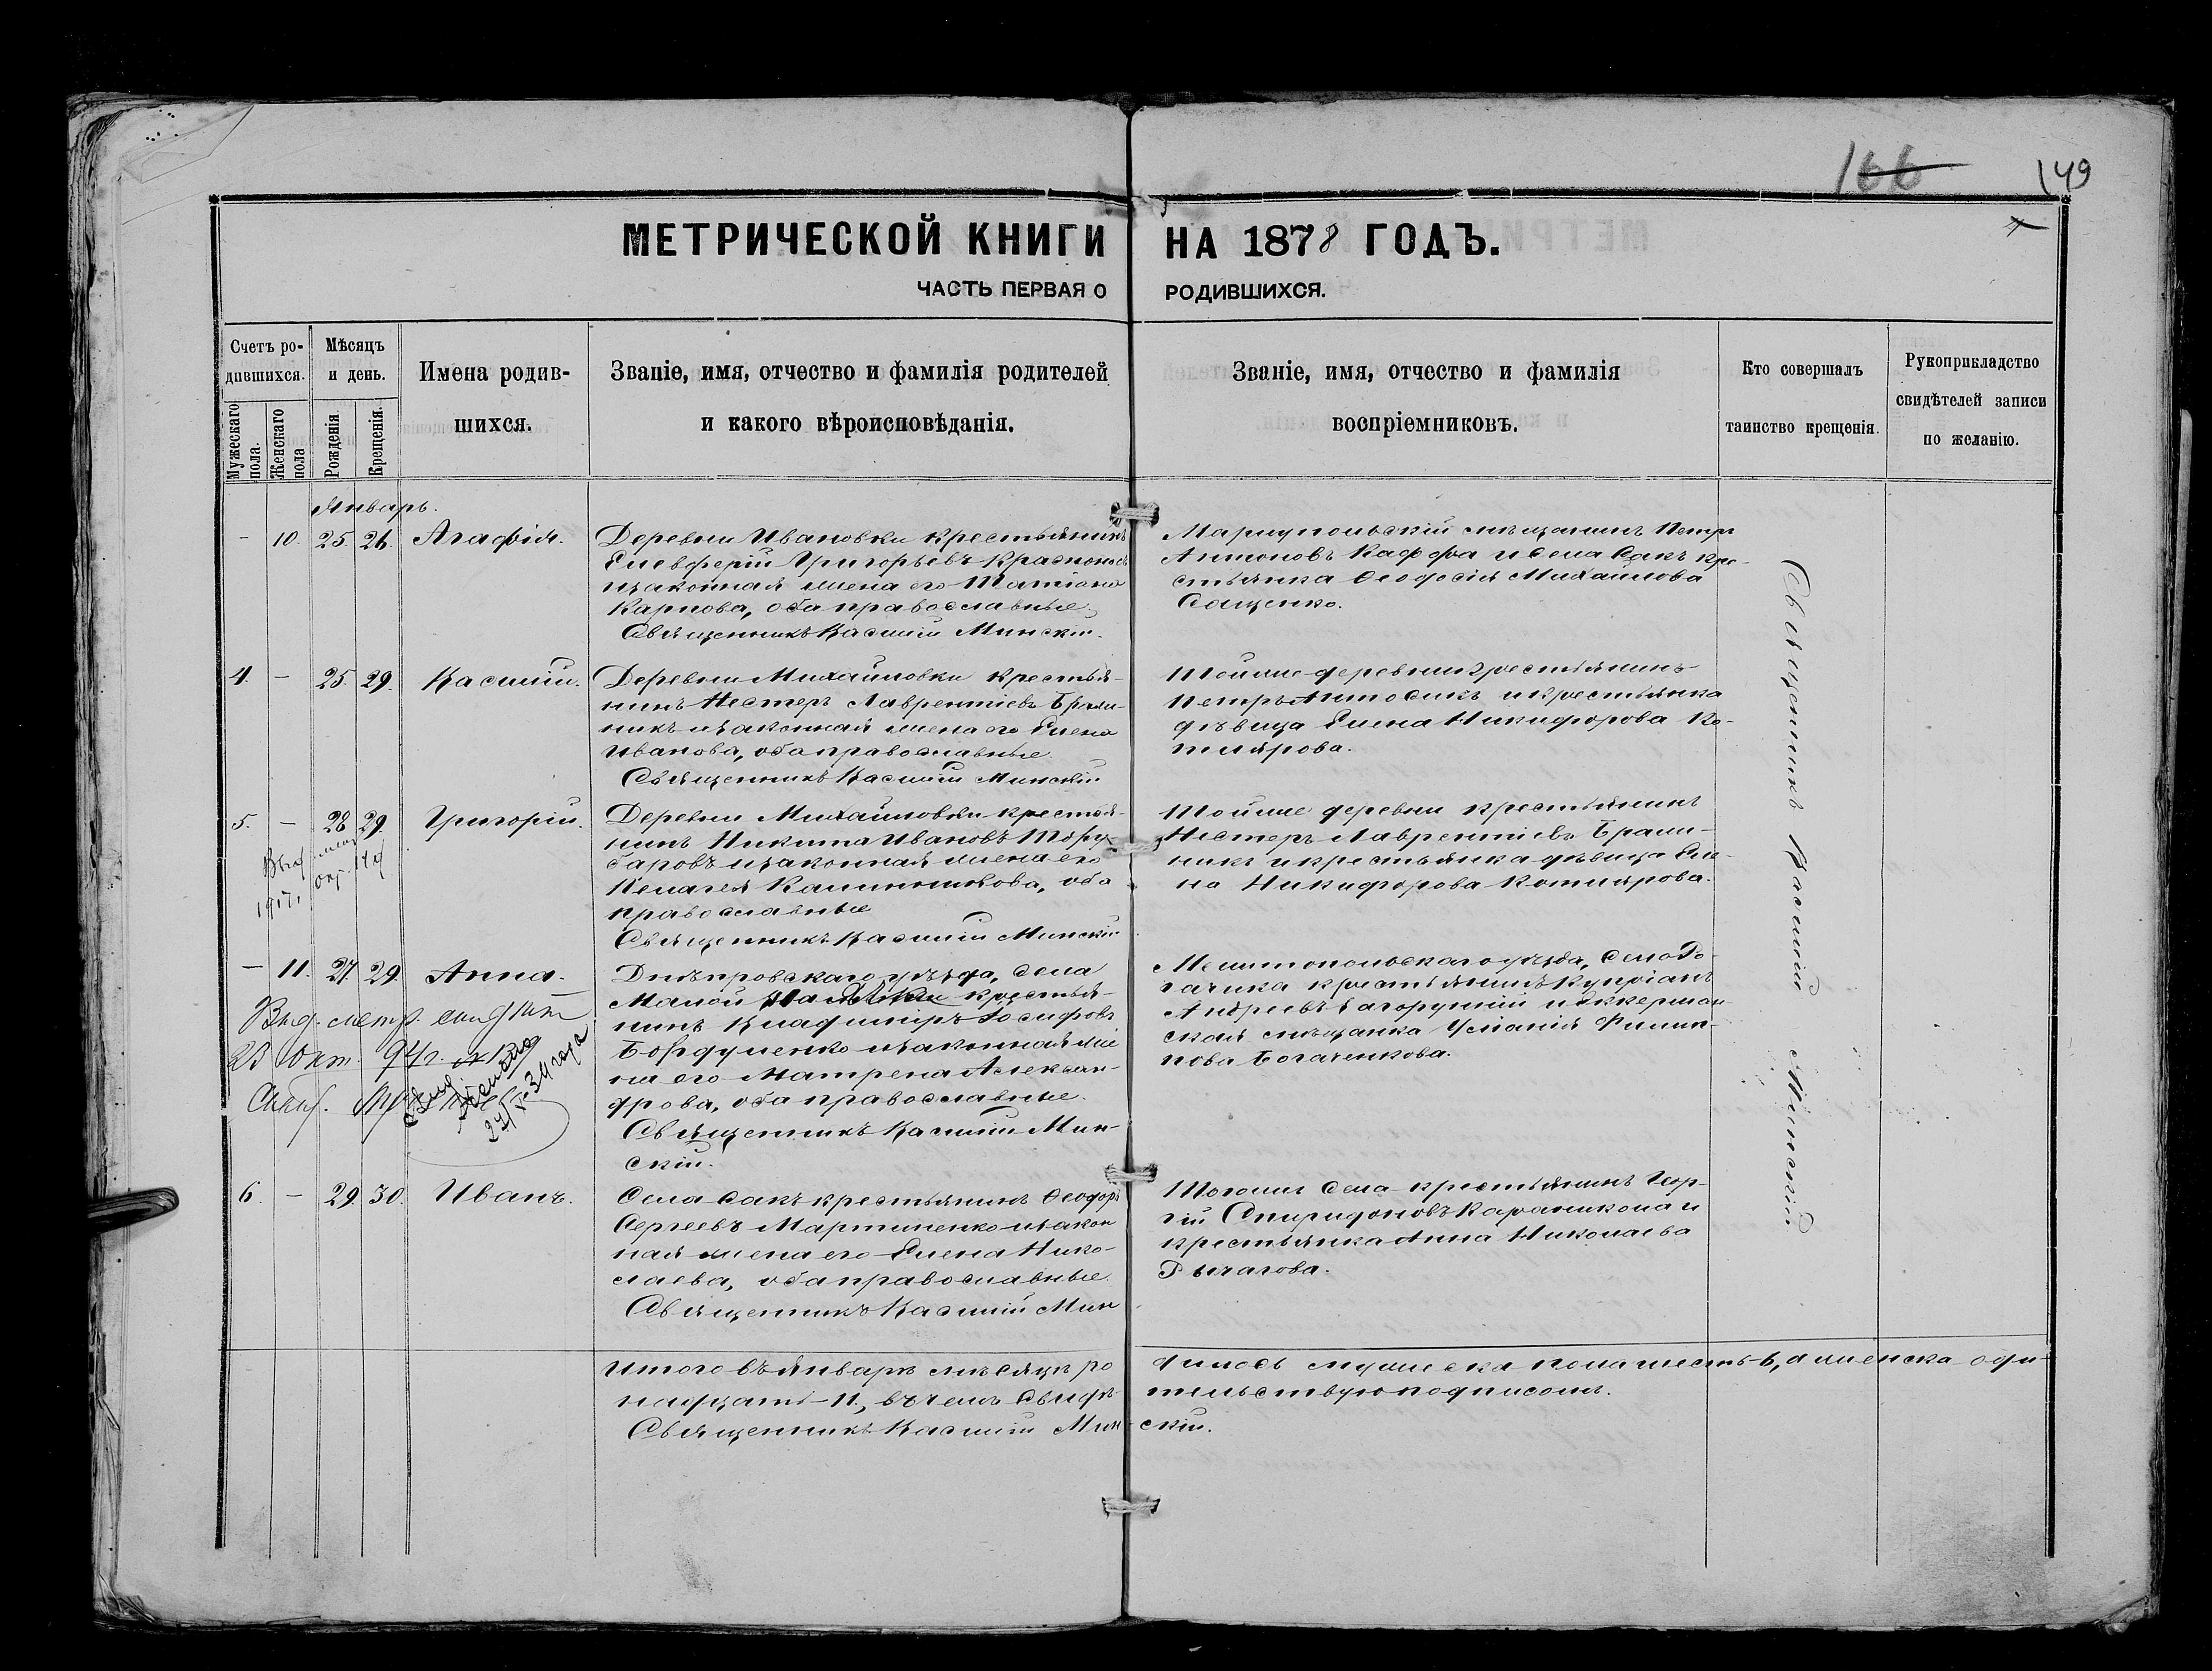 166 149
МЕТРИЧЕСКОЙ КНИГИ НА 1878 ГОДЪ.
ЧАСТЬ ПЕРВАЯ О РОДИВШИХСЯ.
Счетъ ро-
дившихся.
Мужескаго
пола.
Женскаго
пола
Мѣсяцъ
и день.
Рожденія
Крещенія.
Имена родив-
шихся.
Званіе, имя, отчество и фамилія родителей
и какого вѣроисповѣданія.
Званіе, имя, отчество и фамилія
воспріемниковъ.
Кто совершалъ
таинство крещенія.
Рукоприкладство
свидѣтелей записи
по желанію.
Январь.
- 10. 25. 26. Агафія.
Деревни Ивановки крестьянинъ
Елевферій Григорьевъ
и законная жена его Татіана
Карпова, оба православные.
Священникъ Касмий Минскій.
Маріупольскій мѣщанинъ Петръ
Антоновъ Каффа и села Сакъ кре-
стьянка Ѳеодосія Михаилова
Сащенко.
4. - 25. 29. Касмий.
Деревни Михайловки крестья-
нинъ Нестеръ Лаврентіевъ Браж-
никъ и законная жена его Елена
Иванова, оба православные.
Священникъ Касмий Минскій
Тойже деревни крестьянинъ
Петръ и крестьянка
дѣвица Елена Никифорова Ко-
тлярова.
5. - 28 29. Григорій.
Деревни Михайловки крестья-
нинъ Никита Ивановъ
и законная жена его
Пелагея оба
православные
Священникъ Касмий Минскій
Тойже деревни крестьянинъ
Нестеръ Лаврентіевъ Браж-
никъ и крестьянка дѣвица Еле-
на Никифорова Котлярова.
- 11. 27 29. Анна.
Днѣпровскаго уѣзда, села
Малой крестья-
нинъ Владиміръ Іосифовъ
Бордуленко и законная же
на его Матрена Алексан-
дрова, оба православные.
Священникъ Касмий Мин-
скій.
Мелитопольскаго уѣзда, село Ро-
гачика крестьянинъ Купріанъ
Андреевъ и Аккерман-
ская мѣщанка Филип-
пова Богаченкова.
Выд. метр.
25 Окт. 94г.
34 года
6. - 29. 30. Иванъ.
Села Сакъ крестьянинъ Ѳеодоръ
Сергеевъ Мартиненко и закон
ная жена его Елена Нико-
лаева, оба православные.
Священникъ Касмий Мин
Тогоже села крестьянинъ Геор-
гій Спиридоновъ и
крестьянка Анна Николаева
Рычагова.
Священникъ Касмий Минскій
Итого въ Январѣ мѣсяцѣ ро дилось мужеска пола шесть-6, а женска оди-
надцать-11., въ чемъ свидѣ тельствую подписомъ.
Священникъ Касмий Мин скій.